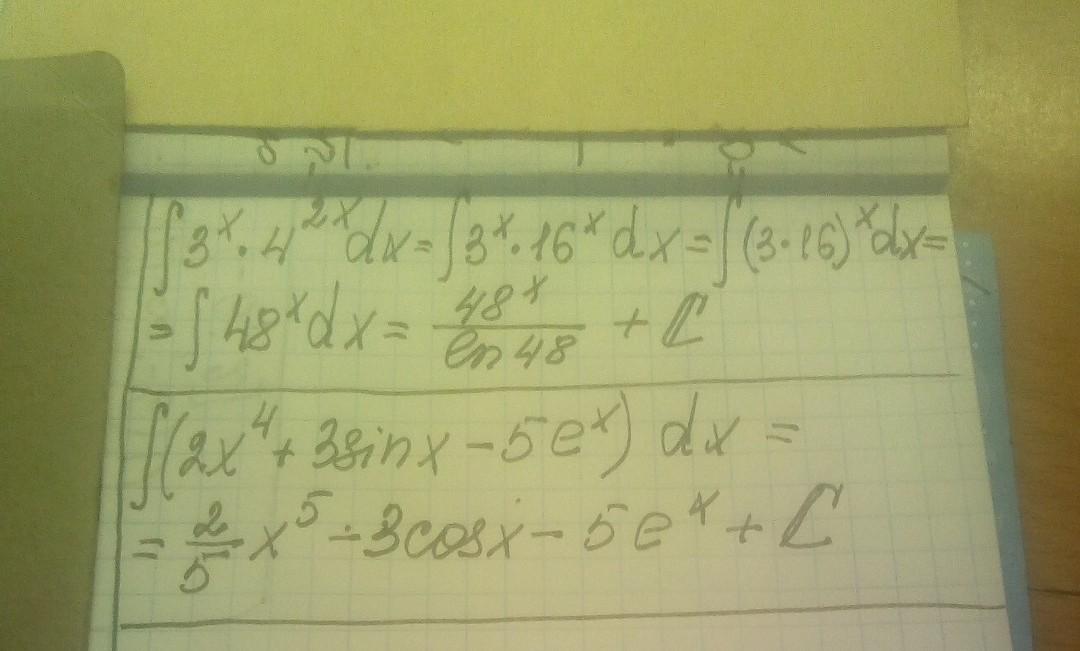 ∫3^x · 4^{2x} dx = ∫3^x · 16^x dx = ∫(3 · 16)^x dx =
= ∫48^x dx = 48^x / ln 48 + C
∫(2x^4 + 3sinx − 5e^x) dx =
= 2/5 x^5 − 3cosx − 5e^x + C